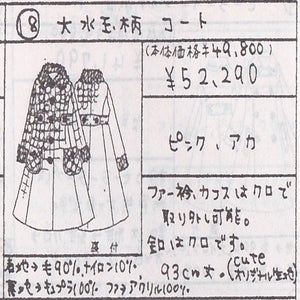 ⑱ 大水玉柄 コート
(本体価格￥49,800)
￥52,290
ピンク、アカ
ファー衿、カフスはクロで
取り外し可能。
釦はクロです。
93cm丈。(cute オリジナル生地)
裏付
表地→毛90%、ナイロン10%、
裏地→キュプラ100% ファー→アクリル100%